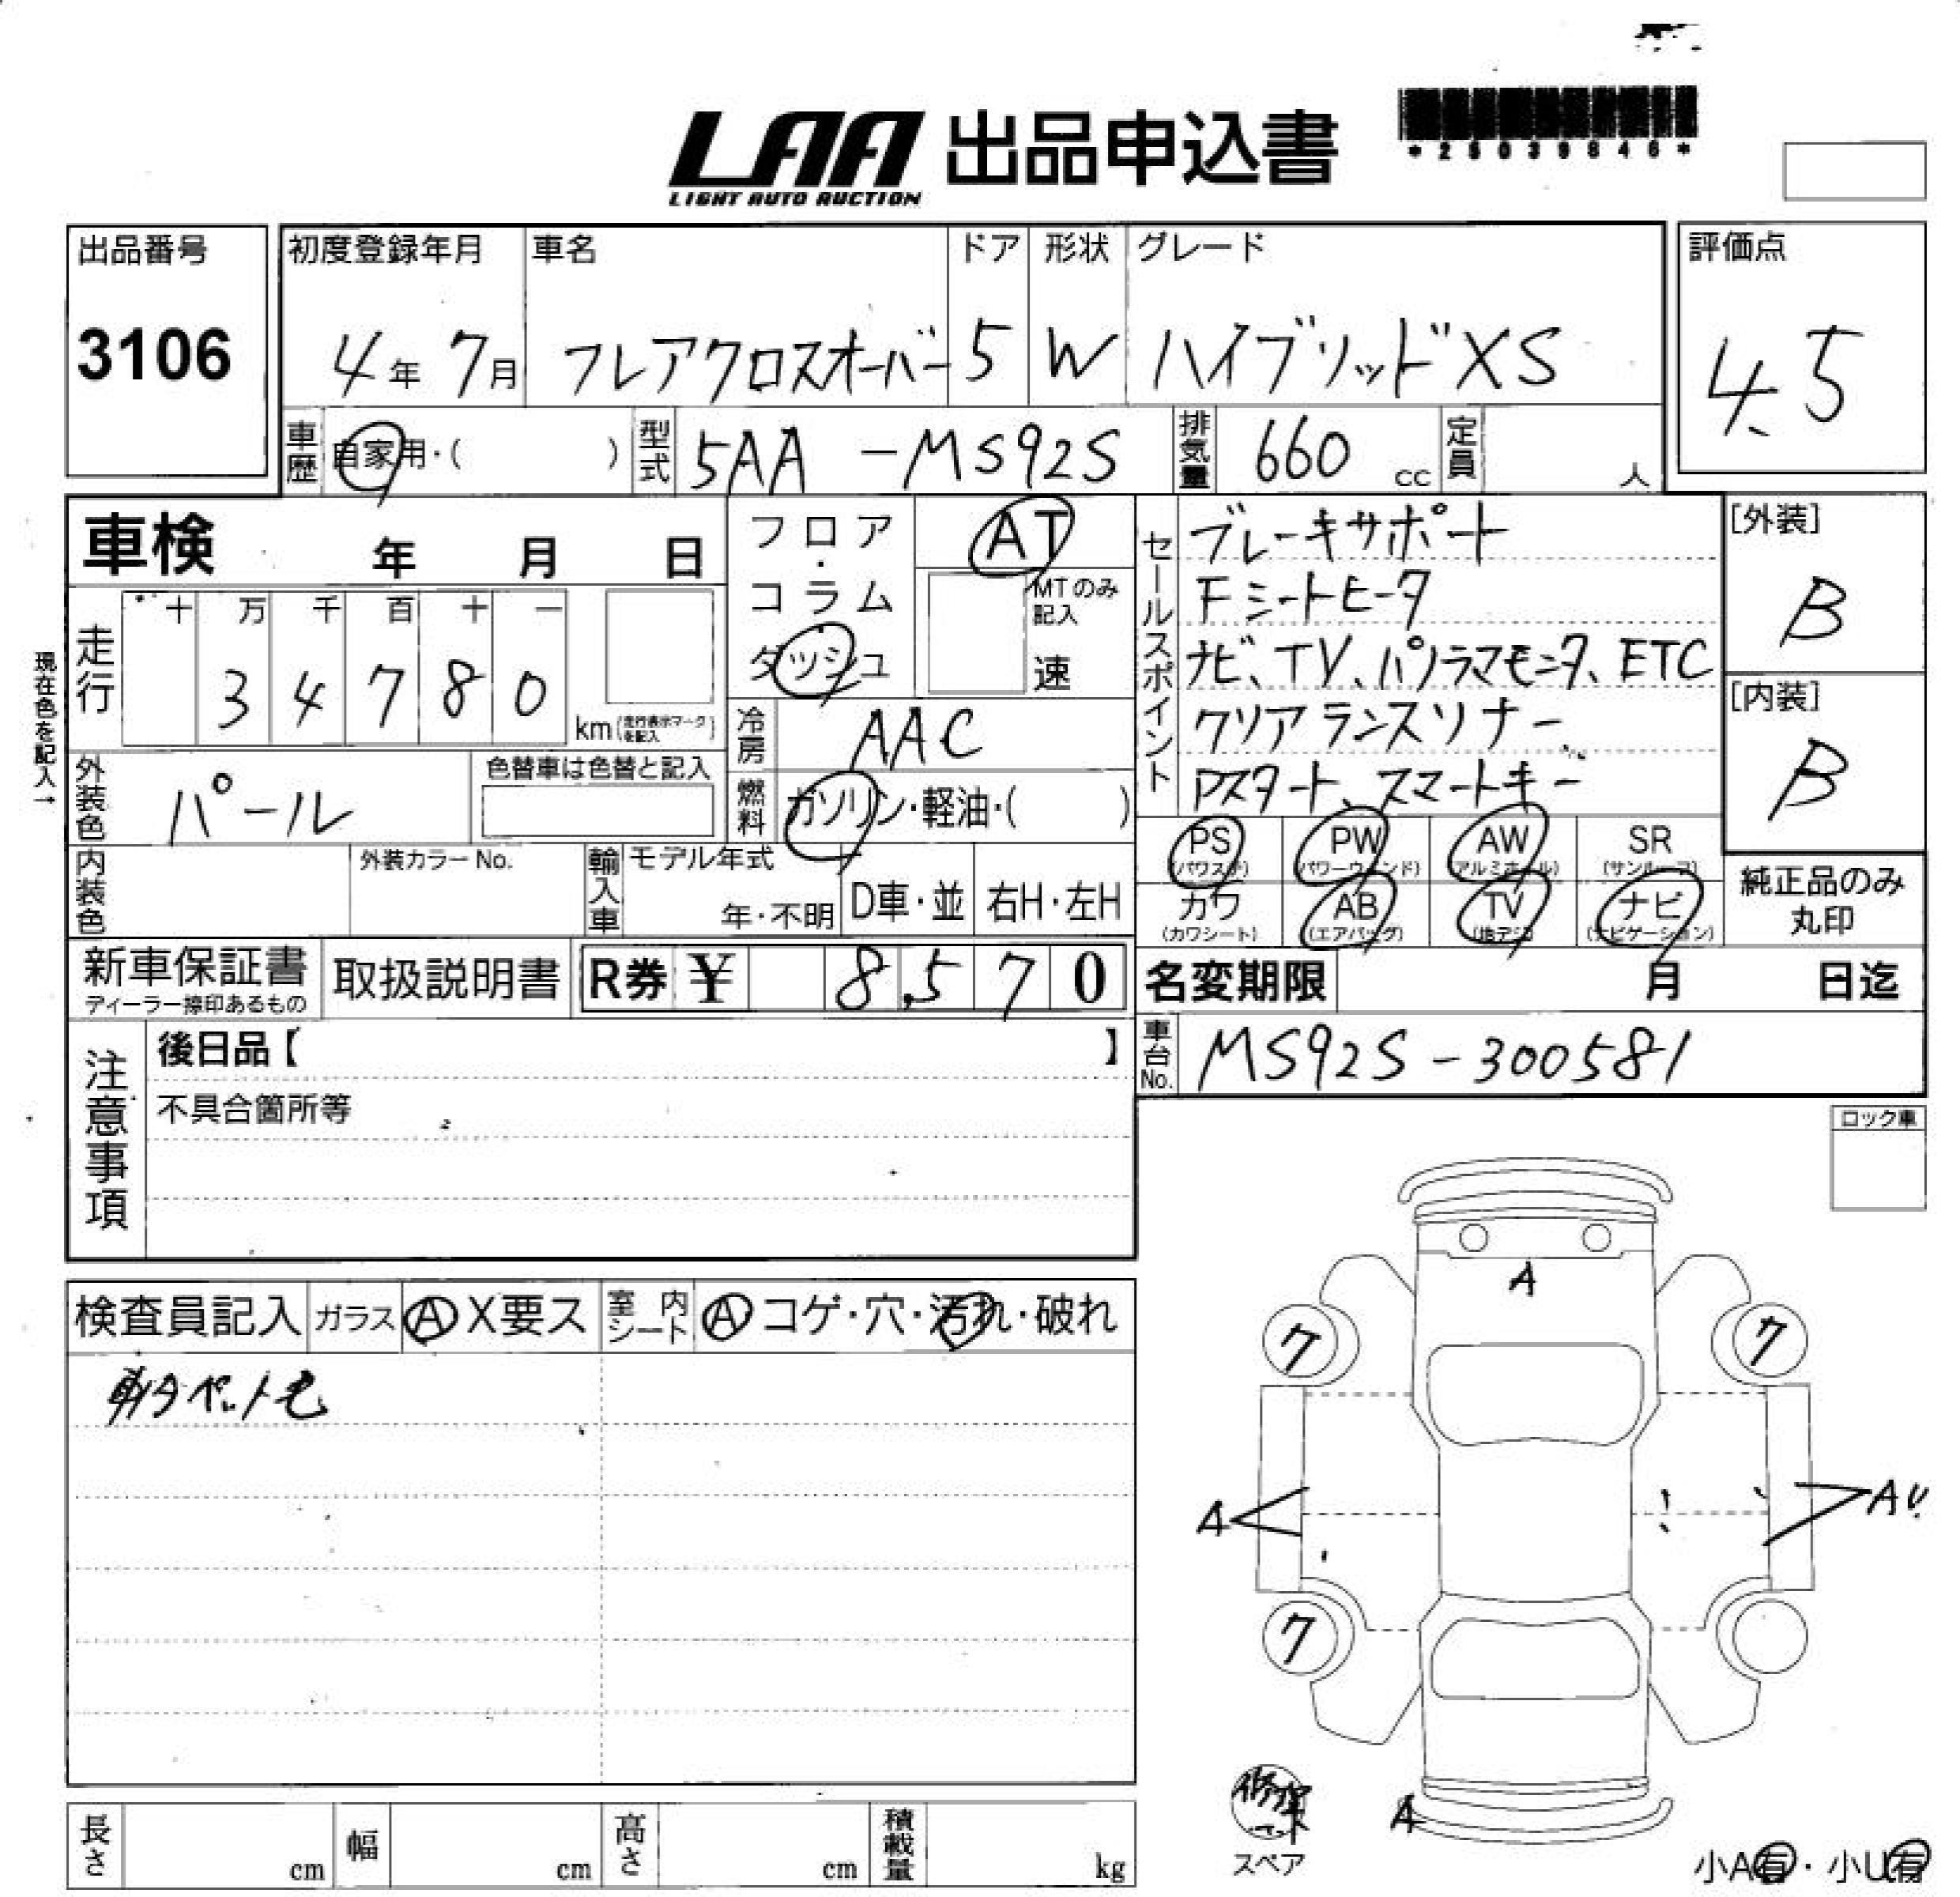 LAA 出品申込書
LIGHT AUTO AUCTION
*25039846*
出品番号
3106
初度登録年月
4年 7月
車名
フレアクロスオーバー
ドア
5
形状
W
グレード
ハイブリッドXS
評価点
4.5
車歴
自家用・( )
型式
5AA -MS92S
排気量
660 cc
定員
人
車検 年 月 日
フロア・コラム・ダッシュ
AT
MTのみ記入
速
セールスポイント
ブレーキサポート
Fシートヒータ
ナビ、TV、パノラマモニタ、ETC
クリアランスソナー
Pスタート、スマートキー
[外装]
B
[内装]
B
現在色を記入→
走行
十 万 千 百 十 一
3 4 7 8 0
km (走行表示マークを記入)
冷房
AAC
外装色
パール
色替車は色替と記入
燃料
ガソリン・軽油・( )
PS (パワステ)
PW (パワーウィンド)
AW (アルミホイール)
SR (サンルーフ)
カワ (カワシート)
AB (エアバッグ)
TV (地デジ)
ナビ (ナビゲーション)
純正品のみ
丸印
内装色
外装カラーNo.
輸入車
モデル年式
年・不明
D車・並
右H・左H
新車保証書
ディーラー捺印あるもの
取扱説明書
R券 ¥ 8,570
名変期限 月 日迄
車台No.
MS92S-300581
注意事項
後日品【 】
不具合箇所等
ロック車
検査員記入
ガラス
A X要ス
室内シート
A コゲ・穴・汚れ・破れ
ペット毛
A
ワ
ワ
A
AU
ワ
A
スペア
小A有・小U有
長さ cm
幅 cm
高さ cm
積載量 kg